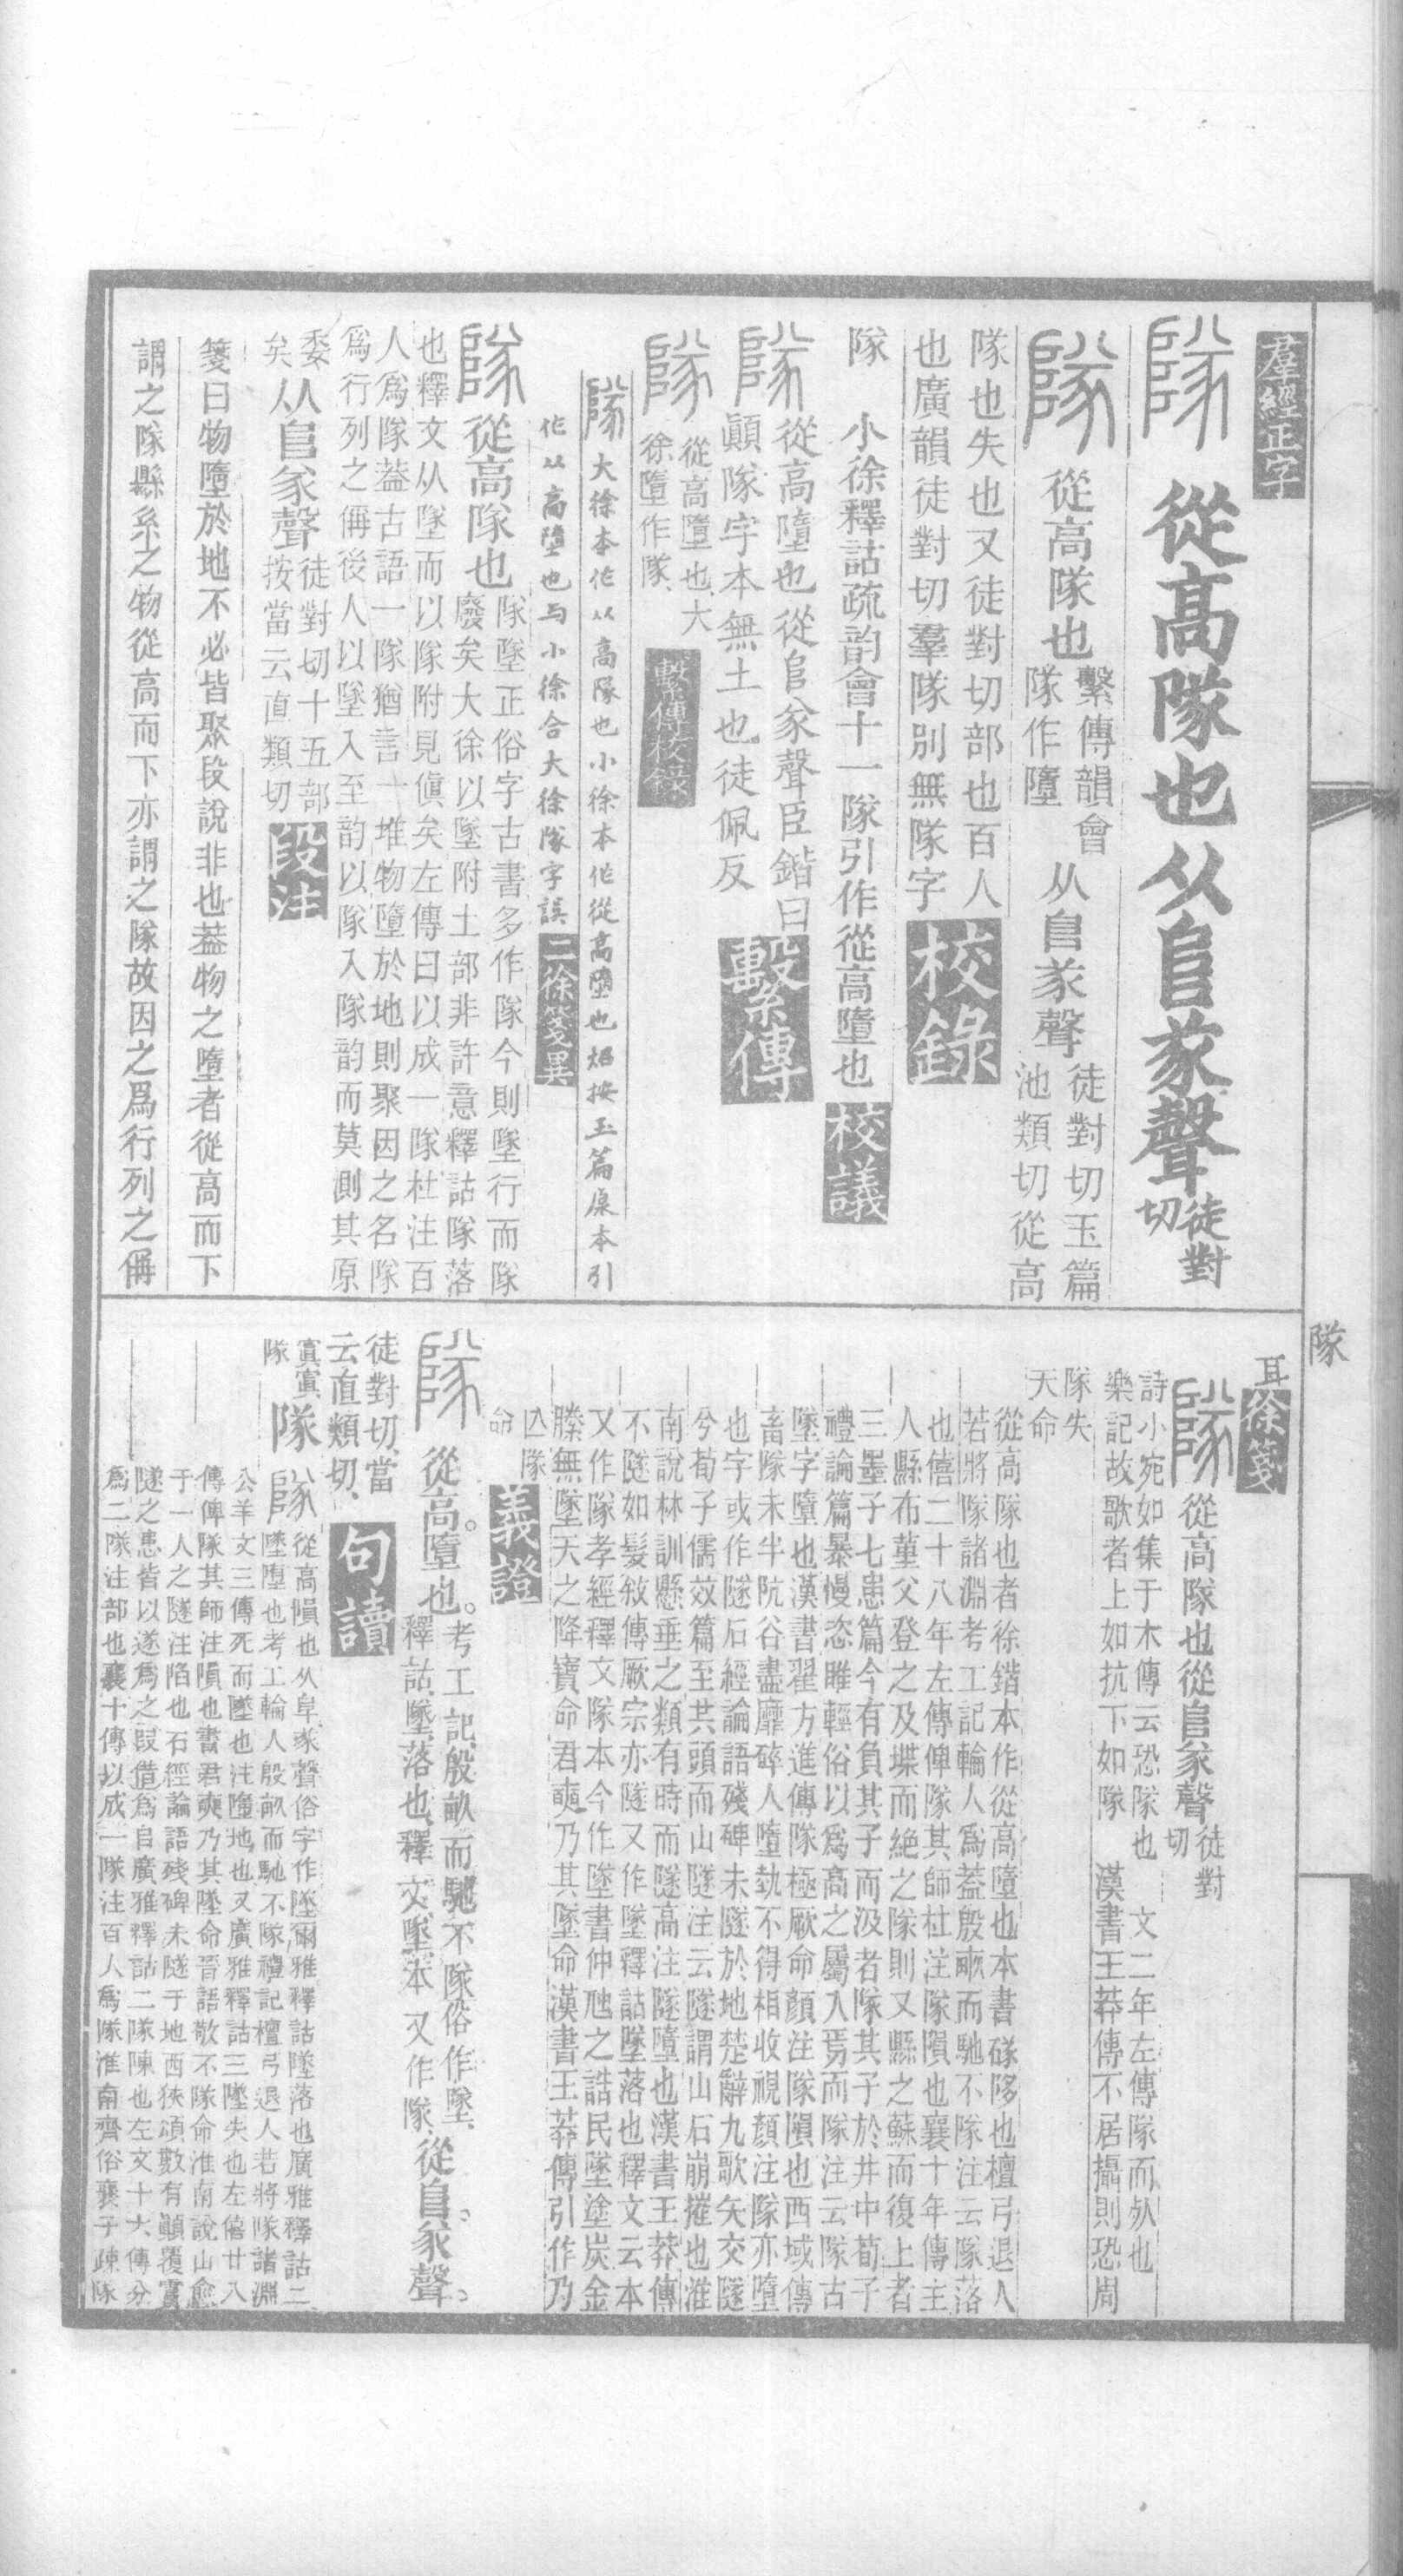 羣經正字
隊 從高隊也从𨸏㒸聲徒對切
隊 從高隊也繫傳韻會隊作墮从𨸏㒸聲徒對切玉篇池類切從高
隊也失也又徒對切部也百人
也廣韻徒對切羣隊別無隊字 校錄
隊 小徐釋詁疏韵會十一隊引作從高墮也 校議
隊 從高墮也從𨸏㒸聲臣鍇曰
顚隊字本無土也徒佩反 繫傳
隊 從高墮也大徐墮作隊 繫傳校錄
隊 大徐本作从高隊也小徐本作從高墮也炤按玉篇𠪚本引
作从高墮也与小徐合大徐隊字誤 二徐箋異
隊 從高隊也隊墜正俗字古書多作隊今則墜行而隊
廢矣大徐以墜附土部非許意釋詁隊落
也釋文从墜而以隊附見傎矣左傳曰以成一隊杜注百
人爲隊葢古語一隊猶言一堆物墮於地則聚因之名隊
爲行列之偁後人以墜入至韵以隊入隊韵而莫測其原
委矣从𨸏㒸聲徒對切十五部按當云直類切 段注
箋曰物墮於地不必皆聚段說非也葢物之墮者從高而下
謂之隊縣系之物從高而下亦謂之隊故因之爲行列之偁
隊
耳 徐箋
隊 從高隊也從𨸏㒸聲徒對切
詩小宛如集于木傳云恐隊也 文二年左傳隊而死也
樂記故歌者上如抗下如隊 漢書王莽傳不居攝則恐周
隊失天命
從高隊也者徐鍇本作從高墮也本書䃍陊也檀弓退人
若將隊諸淵考工記輪人爲蓋殷畝而馳不隊注云隊落
也僖二十八年左傳俾隊其師杜注隊隕也襄十年傳主
人縣布堇父登之及堞而絕之隊則又縣之蘇而復上者
三墨子七患篇今有負其子而汲者隊其子於井中荀子
禮論篇暴慢恣睢輕俗以爲高之屬入焉而隊注云隊古
墜字墮也漢書翟方進傳隊極厥命顏注隊隕也西域傳
畜隊未半阬谷盡靡碎人墮埶不得相收視顏注隊亦墮
也字或作隧石經論語殘碑未隧於地楚辭九歌矢交隧
兮荀子儒效篇至共頭而山隧注云隧謂山石崩摧也淮
南說林訓懸垂之類有時而隧高注隧墮也漢書王莽傳
不隧如髮敘傳厥宗亦隧又作墜釋詁墜落也釋文云本
又作隊孝經釋文隊本今作墜書仲虺之誥民墜塗炭金
縢無墜天之降寶命君奭乃其墜命漢書王莽傳引作乃
亡隊命 義證
隊 從高墮也。考工記殷畝而馳不隊俗作墜、
釋詁、墜落也、釋文墜本又作隊、從𨸏㒸聲。
徒對切、當云直類切、 句讀
隊 從高隕也从阜㒸聲俗字作墜爾雅釋詁墜落也廣雅釋詁二
墜墮也考工輪人殷畝而馳不隊禮記檀弓退人若將隊諸淵
公羊文三傳死而墜也注墮地也又廣雅釋詁三墜失也左僖廿八
傳俾隊其師注隕也書君奭乃其墜命晉語敬不隊命淮南說山愈
于一人之隧注陷也石經論語殘碑未隧于地西狹頌數有顚覆霣
隧之患皆以遂爲之叚借爲自廣雅釋詁二隊陳也左文十六傳分
爲二隊注部也襄十傳以成一隊注百人爲隊淮南齊俗襄子疎隊